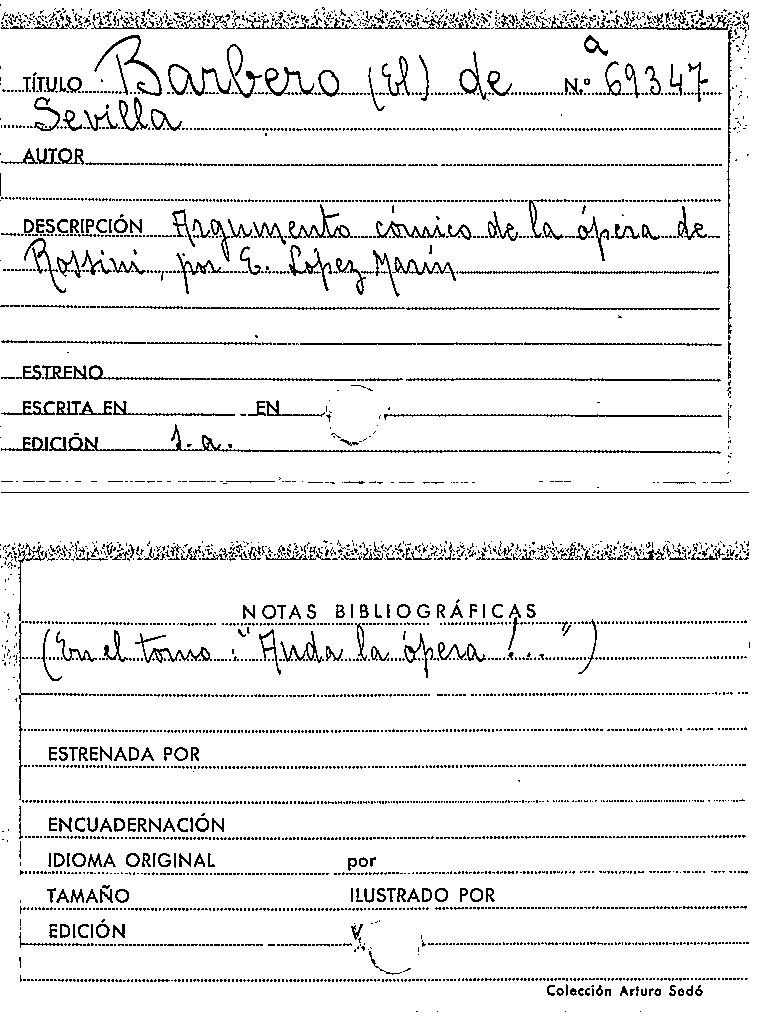 a
TÍTULO Barbero (El) de N.º 69347
Sevilla
AUTOR
DESCRIPCIÓN Argumento cómico de la ópera de
Rossini, por E. López Marín
ESTRENO
ESCRITA EN EN
EDICIÓN s.a.
NOTAS BIBLIOGRÁFICAS
(En el tomo: "Anda la ópera!..")
ESTRENADA POR
ENCUADERNACIÓN
IDIOMA ORIGINAL por
TAMAÑO ILUSTRADO POR
EDICIÓN
Colección Arturo Sedó